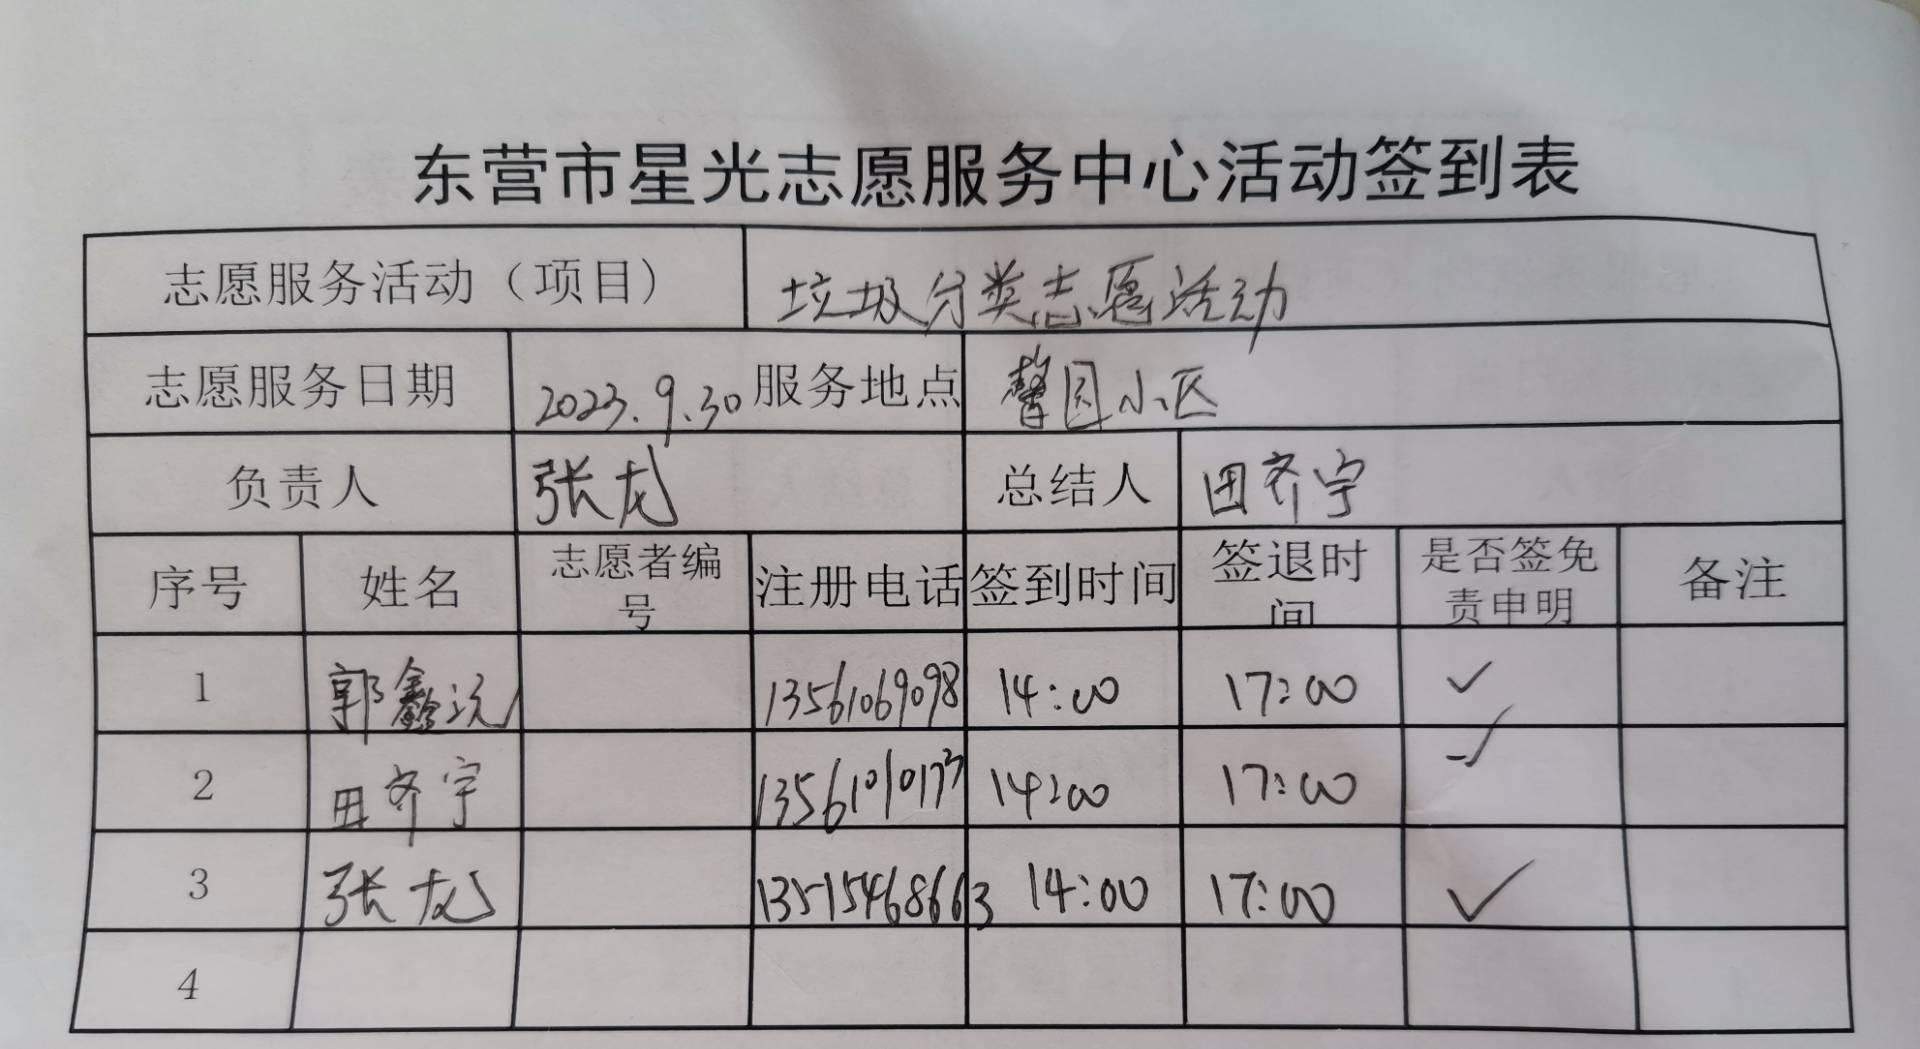 东营市星光志愿服务中心活动签到表
志愿服务活动（项目） 垃圾分类志愿活动
志愿服务日期 2023.9.30 服务地点 馨园小区
负责人 张龙 总结人 田齐宇
序号 姓名 志愿者编号 注册电话 签到时间 签退时间 是否签免责申明 备注
1 郭鑫沅 13561069098 14:00 17:00 ✓
2 田齐宇 13561010173 14:00 17:00 ✓
3 张龙 13515468663 14:00 17:00 ✓
4